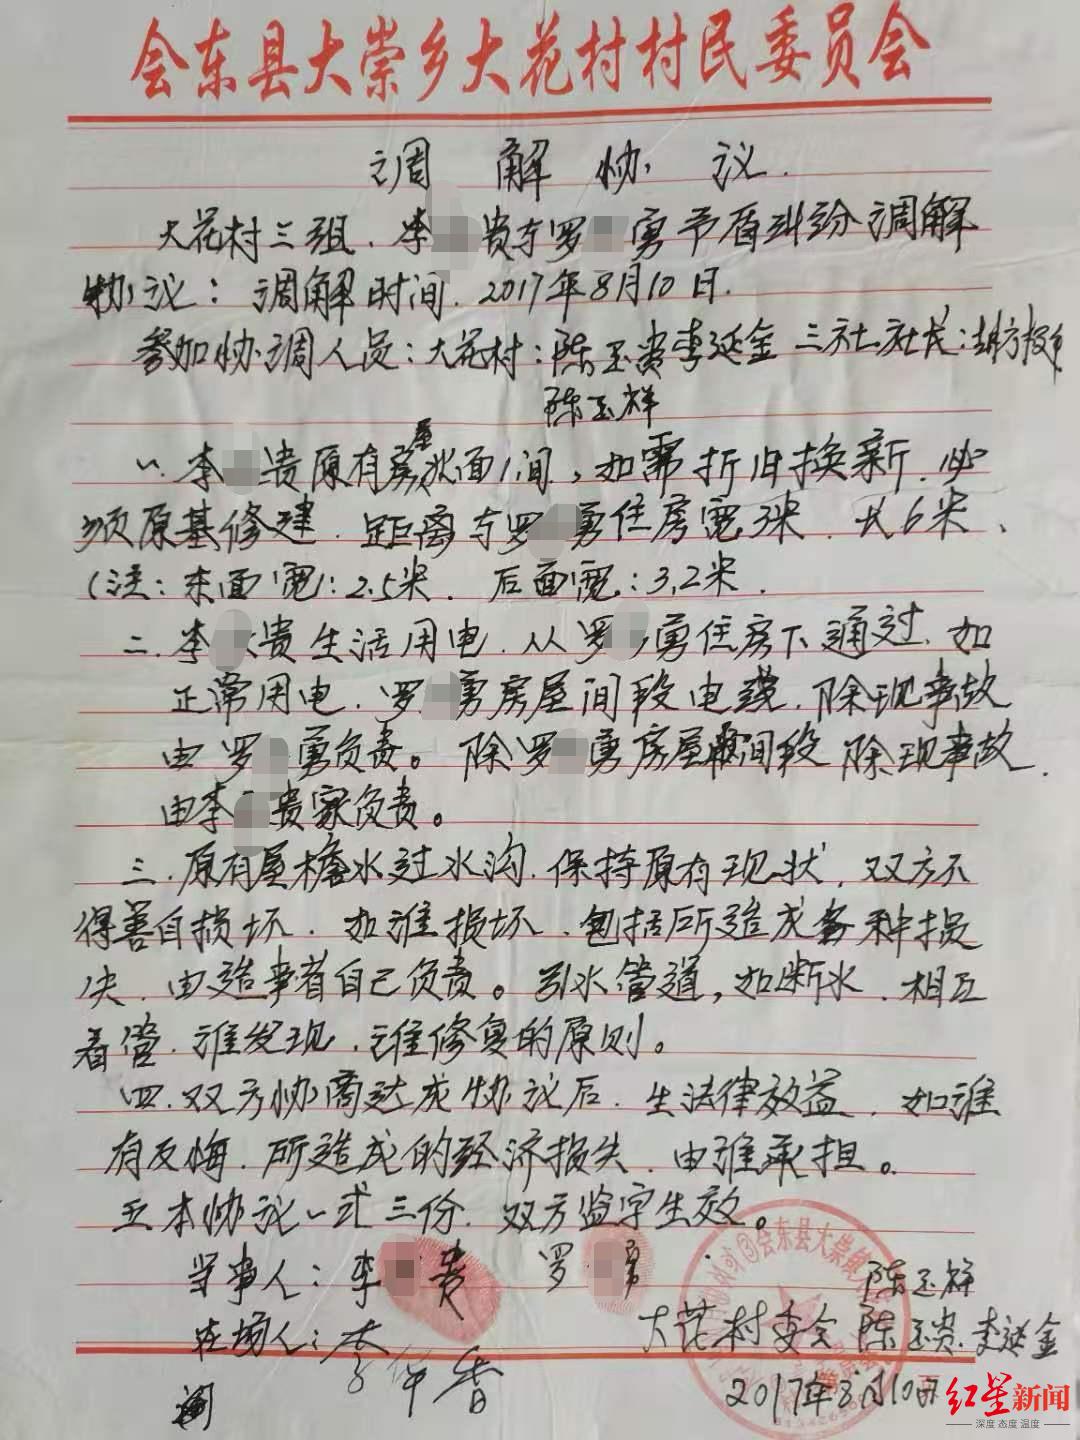 会东县大崇乡大花村村民委员会
调解协议.
大花村三组.李 贵与罗 勇予盾纠纷调解
协议：调解时间.2017年8月10日.
参加协调人员：大花村：陈玉贵李延金 三社社长：
陈玉祥
一.李 贵原有房屋 面1间，如需折旧换新.必
须原基修建.距离与罗 勇住房宽3米.长6米、
(注：东面宽：2.5米. 后面宽：3.2米.
二.李 贵生活用电.从罗 勇住房下通过.如
正常用电.罗 勇房屋间段电线.除现事故
由罗 勇负责。除罗 勇房屋 间段 除现事故.
由李 贵家负责。
三.原有屋檐水过水沟.保持原有现状.双方不
得善自损坏.如谁损坏.包括所造成各种损
失.由造事者自己负责。引水管道，如断水.相互
看管.谁发现.谁修复的原则。
四.双方协商达成协议后.生法律效益.如谁
有反悔.所造成的经济损失.由谁承担。
五本协议一式三份.双方监字生效。
当事人：李 贵 罗 勇
陈玉祥
在场人：李 香
大花村委会 陈玉贵.李延金
2017年8月10日
会东县大崇镇
红星新闻
深度 态度 温度